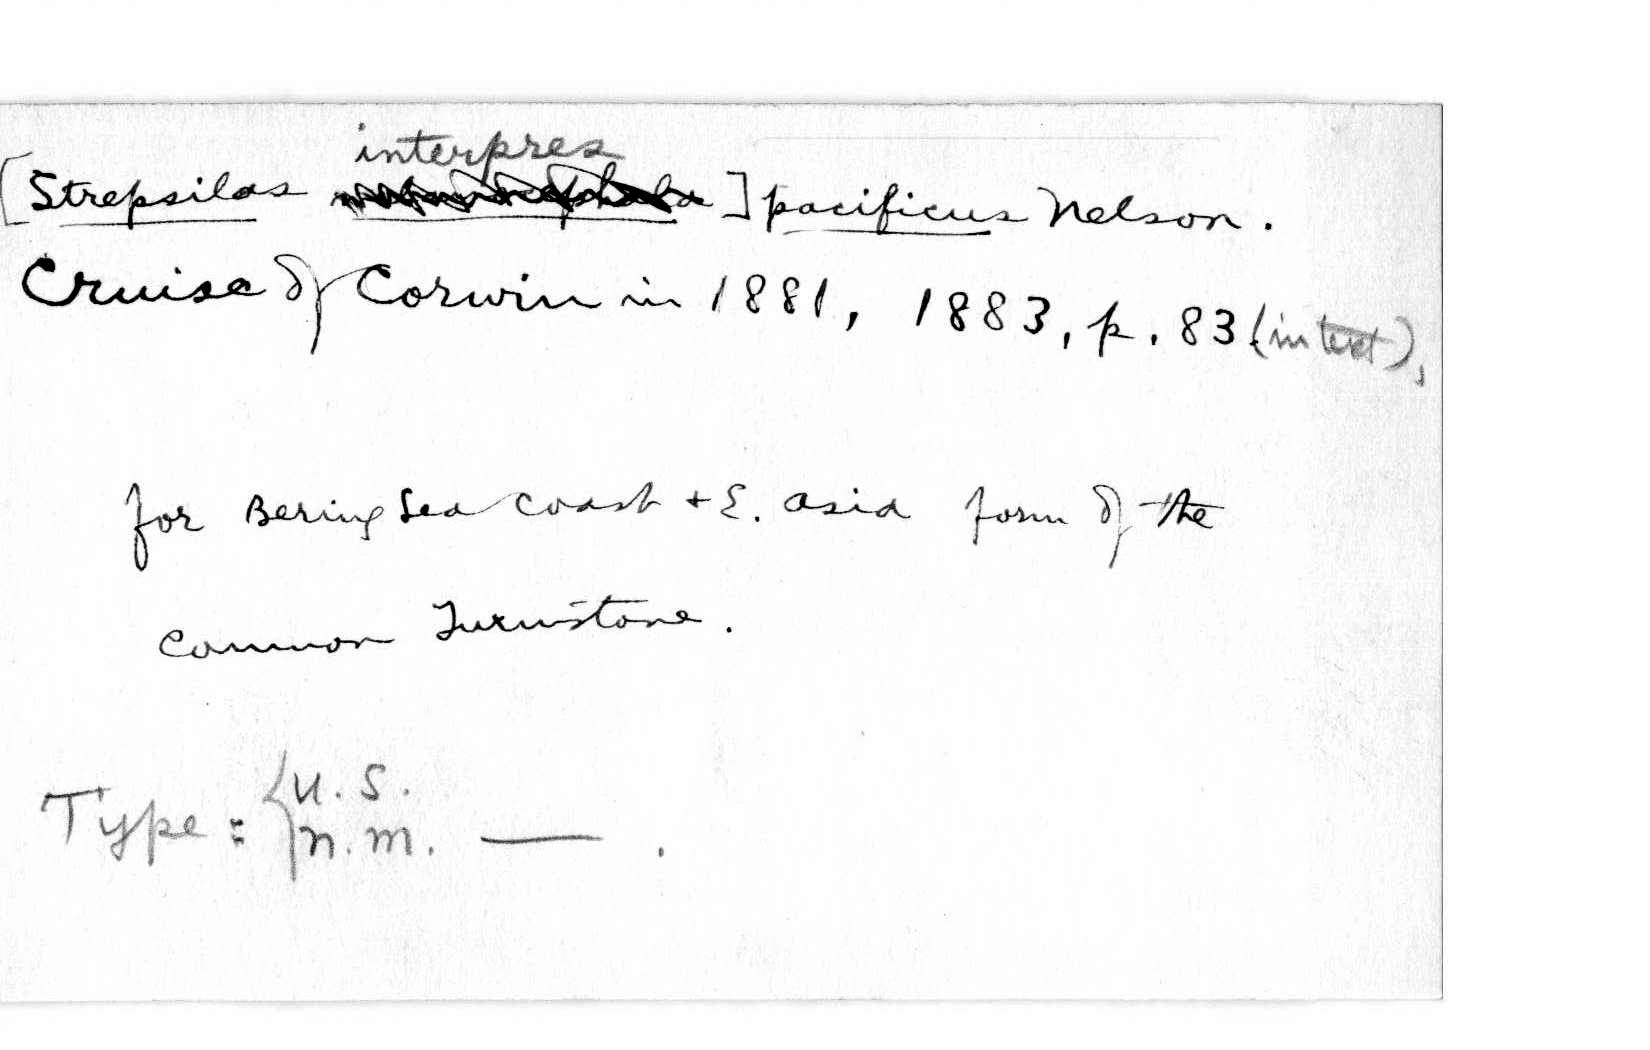 interpres
[Strepsilas melanocephala] pacificus Nelson.
Cruise of Corwin in 1881, 1883, p. 83 (in text),
for Bering Sea coast + E. Asia form of the
common Turnstone.
Type : { U. S.
N. M. — .